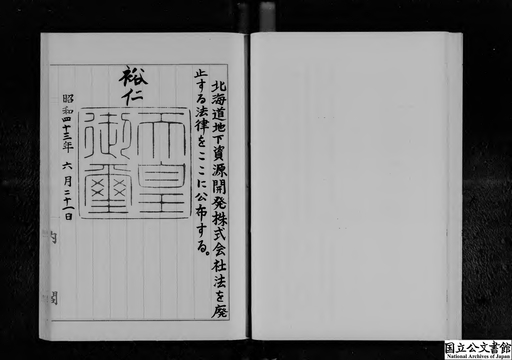 北海道地下資源開発株式会社法を廃
止する法律をここに公布する。
裕仁
天皇
御璽
昭和四十三年 六月二十一日
内閣
国立公文書館
National Archives of Japan